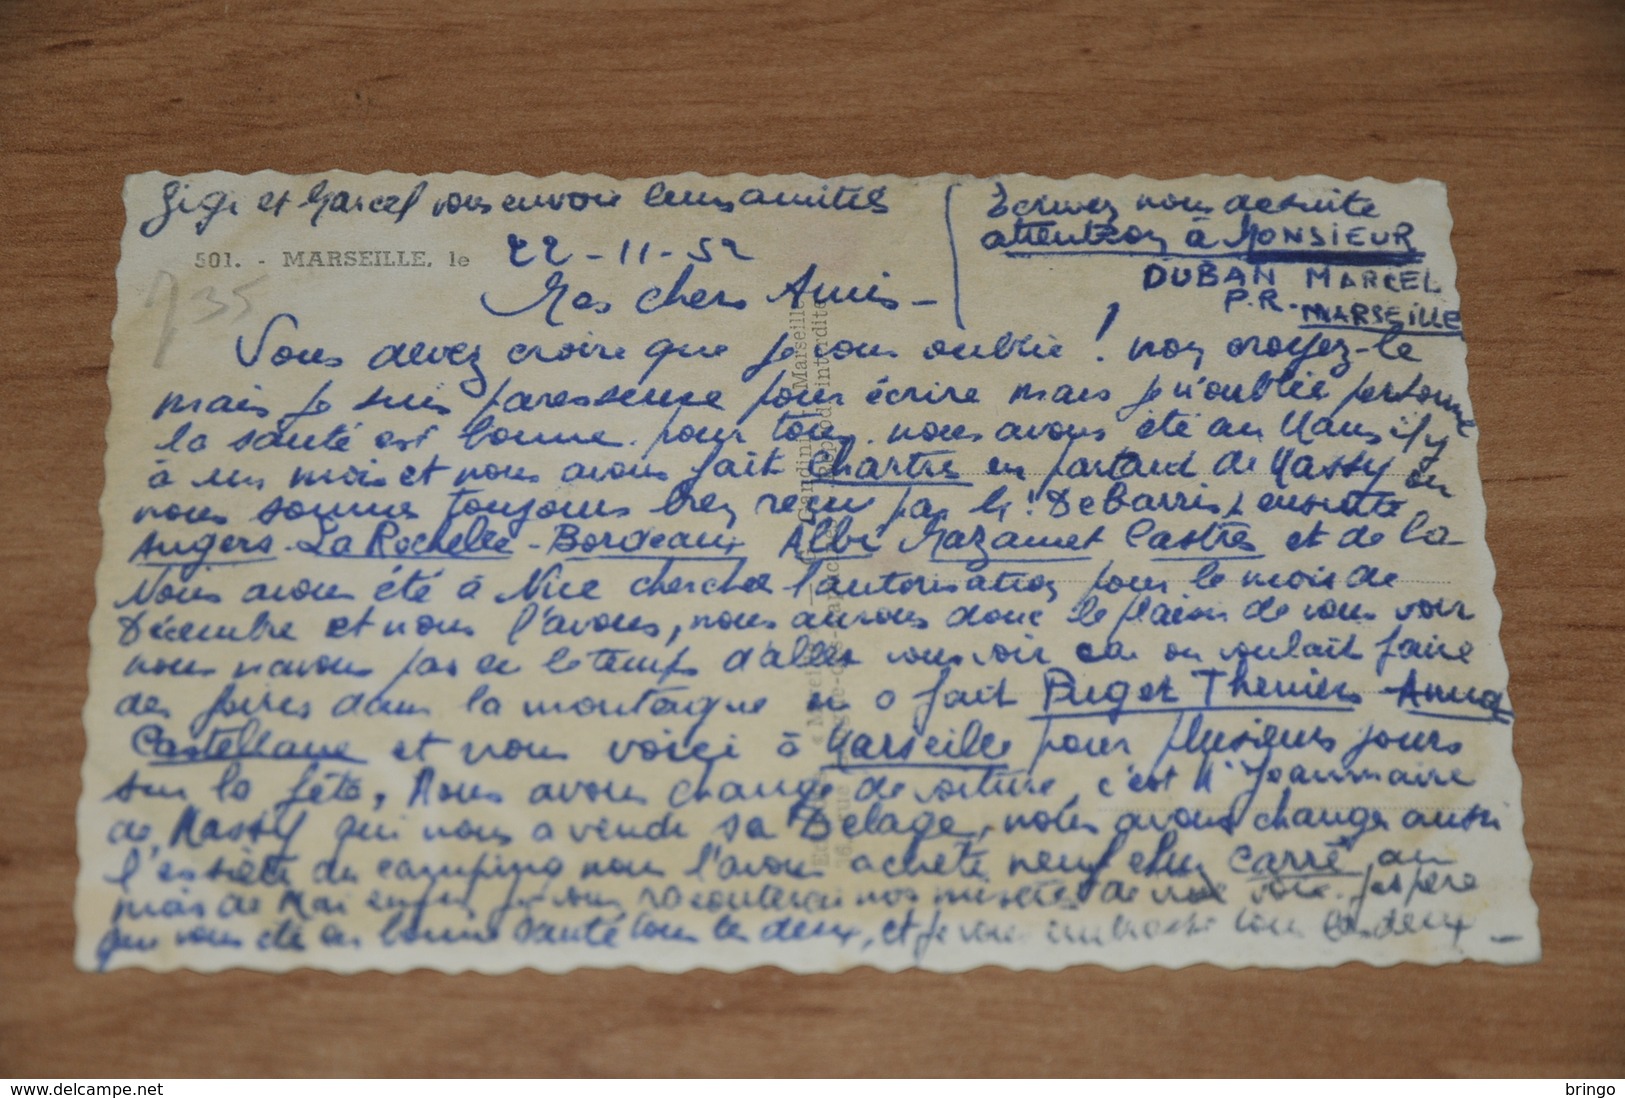 Gigi et Marcel vous envoie leurs amitiés
Ecrivez nous de suite
attention à MONSIEUR
DUBAN MARCEL
P.R. - MARSEILLE
501. - MARSEILLE, le 22-11-52
735
Mes chers Amis -
Vous devez croire que je vous oublie ! non croyez-le
mais je suis paresseuse pour écrire mais je n'oublie personne
la santé est bonne pour tous. nous avons été au Mans il y
à un mois et nous avons fait Chartre en partant de Massy ou
nous sommes toujours bien reçu par Debarris, ensuite
Angers - La Rochelle - Bordeaux Albi Mazamet Castres et de la
Nous avons été à Nice chercher l'autorisation pour le mois de
Décembre et nous l'avons, nous aurons donc le plaisir de vous voir
nous navons pas eu le temps d'aller vous voir car on voulait faire
des foires dans la montagne on a fait Puget Theniers - Annot
Castellane et nous voici à Marseille pour plusieurs jours
sur la fête, Nous avons change de voiture, c'est Mr Jeanmaire
de Massy qui nous a vendu sa Delage, nous avons changer aussi
de camping nous l'avons acheté neuf chez Carré au
mois de Mai enfin je vous raconterai nos misères de vive voix. J'espère
que vous éte en bonne santé tous les deux, et je vous embrasse tous les deux -
Gandini Marseille
Reprod. interdite
bringo
www.delcampe.net